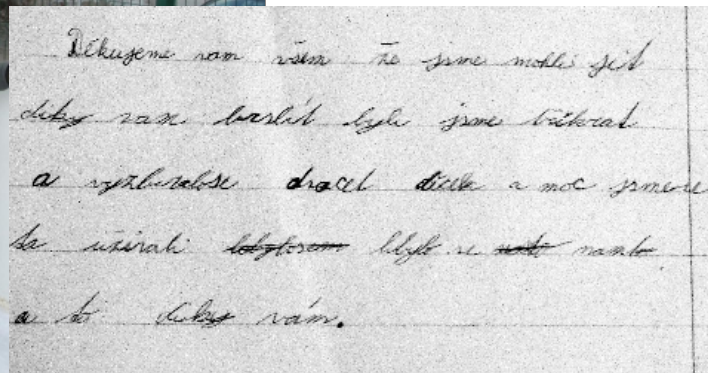 Děkujeme vam všem že jsme mohli jít
díky vam bruslit byli jsme třikrat
a vyzkoušelose dvacet dětí a moc jsme se
to užívali líbylo se namto
a to díky vám.